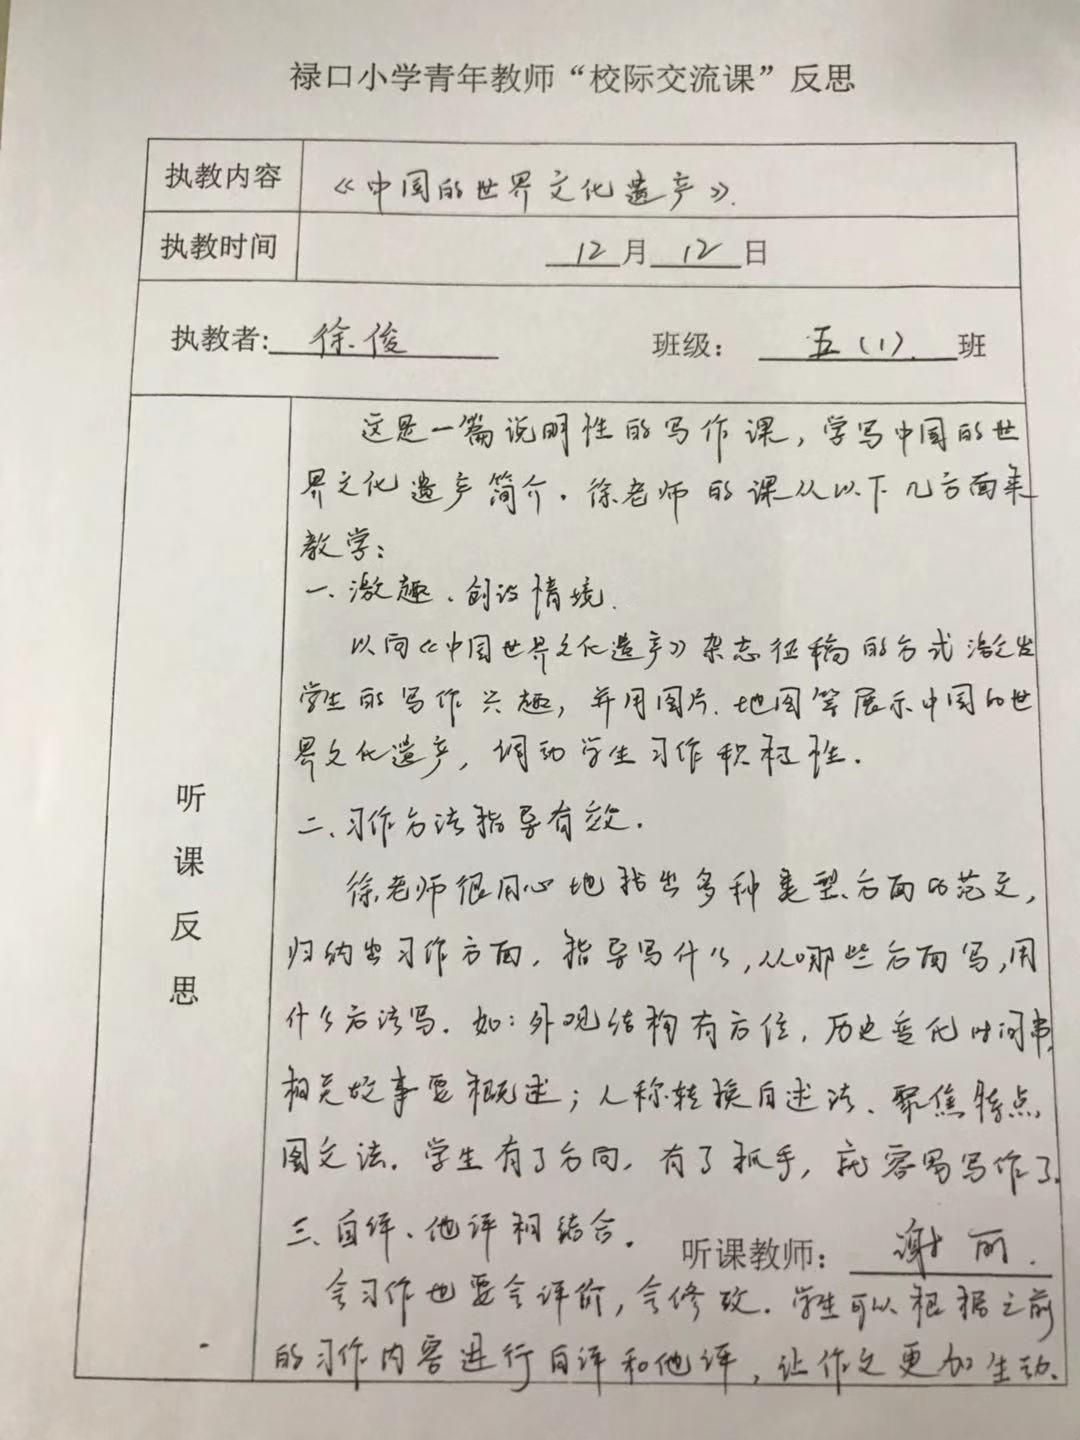 禄口小学青年教师“校际交流课”反思
执教内容 《中国的世界文化遗产》.
执教时间 12月12日
执教者: 徐俊 班级： 五（1）. 班
听课反思
这是一篇说明性的写作课，学写中国的世
界文化遗产简介。徐老师的课从以下几方面来
教学：
一、激趣、创设情境.
以向《中国世界文化遗产》杂志征稿的方式激发
学生的写作兴趣，并用图片、地图等展示中国的世
界文化遗产，调动学生习作积极性。
二、习作方法指导有效。
徐老师很用心地找出多种类型、方面的范文，
归纳出习作方面，指导写什么，从哪些方面写，用
什么方法写。如：外观结构有方位，历史变化时间串，
相关故事要概述；人称转换自述法、聚焦特点、
图文法。学生有了方向，有了抓手，就容易写作了。
三、自评、他评相结合。
听课教师： 谢丽.
会习作也要会评价，会修改。学生可以根据之前
的习作内容进行自评和他评，让作文更加生动。